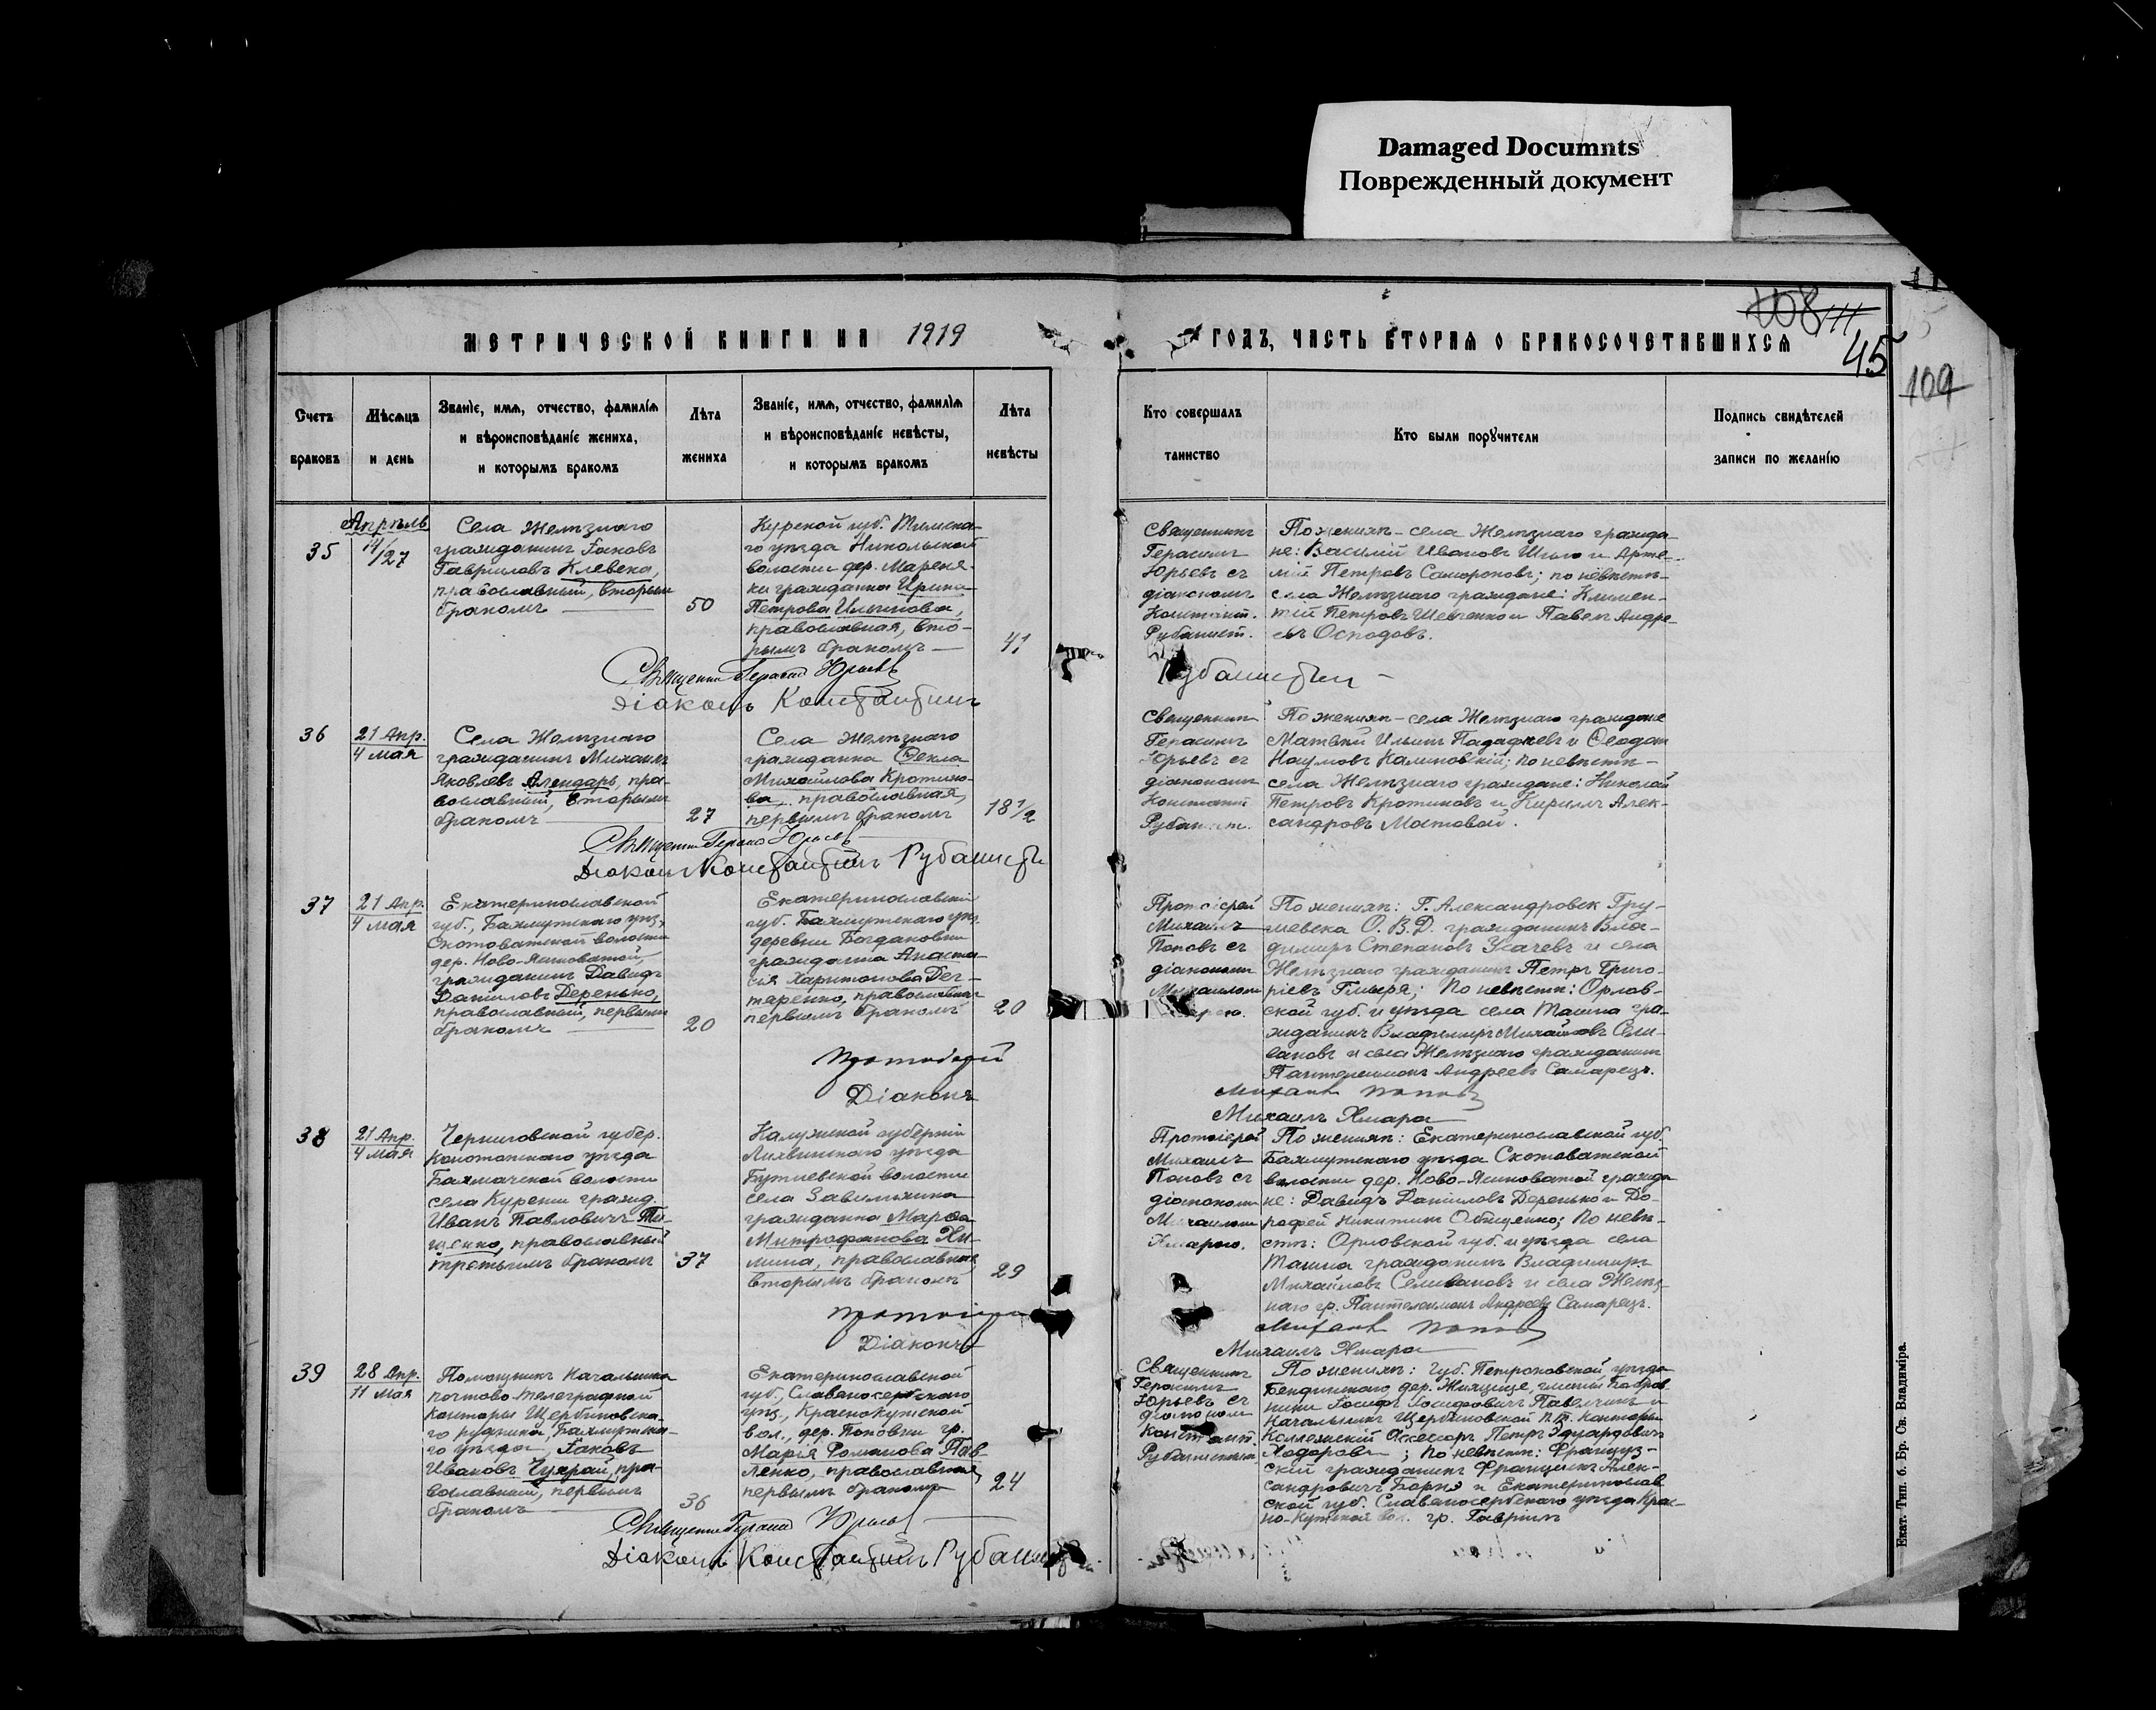 Damaged Documnts
Поврежденный документ
108 111
45
109
МЕТРИЧЕСКОЙ КНИГИ НА 1919
ГОДЪ, ЧАСТЬ ВТОРАЯ О БРАКОСОЧЕТАВШИХСЯ
Счетъ браковъ
Мѣсяцъ и день
Званіе, имя, отчество, фамилія
и вѣроисповѣданіе жениха,
и которымъ бракомъ
Лѣта жениха
Званіе, имя, отчество, фамилія
и вѣроисповѣданіе невѣсты,
и которымъ бракомъ
Лѣта невѣсты
Кто совершалъ
таинство
Кто были поручители
Подпись свидѣтелей
записи по желанію
35
Апрѣль
14/27
Села Желѣзнаго
гражданинъ Іаковъ
Гавриловъ Клевека,
православный, вторымъ
бракомъ
50
Курской губ. Тимска-
го уѣзда Никольской
волости дер.
гражданка Ирина
Петрова Ильинова,
православная, вто-
рымъ бракомъ
41
Священникъ
Герасимъ
Юрьевъ съ
діакономъ
Констант.
Рубанист.
По женихѣ – села Желѣзнаго гражда-
не: Василій Ивановъ и Арте-
мій Петровъ Самороковъ; по невѣстѣ –
села Желѣзнаго граждане: Климен-
тій Петровъ Шевченко и Павелъ Андре-
евъ Осподовъ.
Священникъ Герасим Юрьевъ
Діаконъ Константинъ
Рубанистый
36
21 Апр.
4 мая
Села Желѣзнаго
гражданинъ Михаилъ
Яковлевъ Алендарь, пра-
вославный, вторымъ
бракомъ
27
Села Желѣзнаго
гражданка Ѳекла
Михайлова Кротино-
ва, православная,
первымъ бракомъ
18 1/2
Священникъ
Герасимъ
Юрьевъ съ
діакономъ
Констант.
Рубанист.
По женихѣ – села Желѣзнаго граждане
Матвѣй Ильинъ и Ѳеодотъ
Наумовъ Калиновскій; по невѣстѣ –
села Желѣзнаго граждане: Николай
Петровъ Кротиновъ и Кириллъ Алек-
сандровъ Мостовой.
Священникъ Герасим Юрьевъ
Діаконъ Константинъ Рубанисты
37
21 Апр.
4 мая
Екатеринославской
губ., Бахмутскаго уѣз.,
Скотоватской волости
дер. Ново-Ясиноватой,
гражданинъ Давидъ
Даниловъ Деренько,
православный, первымъ
бракомъ
20
Екатеринославской
губ. Бахмутскаго уѣз.
деревни Богдановки
гражданка Анаста-
сія Харитонова Дег-
таренко, православная
первымъ бракомъ
20
Протоіерей
Михаилъ
Поповъ съ
діакономъ
Михаиломъ
По женихѣ: г. Александровск Гру-
шевска О. В. Д. гражданинъ Вла-
димиръ Степановъ Усачевъ и села
Желѣзнаго гражданинъ Петръ Григо-
ріевъ Гмыря; По невѣстѣ: Орлов-
ской губ. и уѣзда села Ташна гра-
жданинъ Владимиръ Михайловъ Сели-
вановъ и села Желѣзнаго гражданинъ
Пантелеимонъ Андреевъ Самарецъ.
Протоіерей
Михаил Попов
Діаконъ
Михаилъ Хмара
38
21 Апр.
4 мая
Черниговской губер.
Конотопскаго уѣзда
Бахмачской волости
села Курени гражд.
Иванъ Павловичъ Ти-
щенко, православный
третьимъ бракомъ
37
Калужской губерніи
Лихвинскаго уѣзда
волости
села
гражданка Марѳа
Митрофанова Хи-
мина, православная
вторымъ бракомъ
29
Протоіерей
Михаилъ
Поповъ съ
діакономъ
Михаиломъ
Хмарою.
По женихѣ: Екатеринославской губ.
Бахмутскаго уѣзда Скотоватской
волости дер. Ново-Ясиноватой гражда-
не: Давидъ Даниловъ Деренько и До-
рофей Никитинъ Обищенко; По невѣ-
стѣ: Орловской губ. и уѣзда села
Ташна гражданинъ Владимиръ
Михайловъ Селивановъ и села Желѣз-
наго гр. Пантелеимонъ Андреевъ Самарецъ.
Протоіерей
Михаил Попов
Діаконъ
Михаилъ Хмара
39
28 Апр.
11 Мая
Помощникъ Начальника
почтово-телеграфной
конторы Щербиновска-
го рудника, Бахмутска-
го уѣзда, Іаковъ
Ивановъ Чухрай, пра-
вославный, первымъ
бракомъ
36
Екатеринославской
губ., Славяносербскаго
уѣз., Краснокутской
вол., дер. Поповки гр.
Марія Романова Пав-
ленко, православная,
первымъ бракомъ
24
Священникъ
Герасимъ
Юрьевъ съ
діакономъ
Констант.
По женихѣ: губ. Петроковской уѣзда
Бендинскаго дер.
Іосифъ Іосифовичъ и
Начальникъ Щербиновской п.т. конторы
Коллежскій Ассесоръ Петръ Эдуардовичъ
; По невѣстѣ: Француз-
скій гражданинъ Францискъ Алек-
сандровичъ Борнэ и Екатеринослав
ской губ. Славяносербскаго уѣзда Крас-
но-Кутской вол. гр. Гавріилъ
Священникъ Герасим Юрьевъ
Діаконъ Константинъ
Екат. Тип. б. Бр. Св. Владиміра.